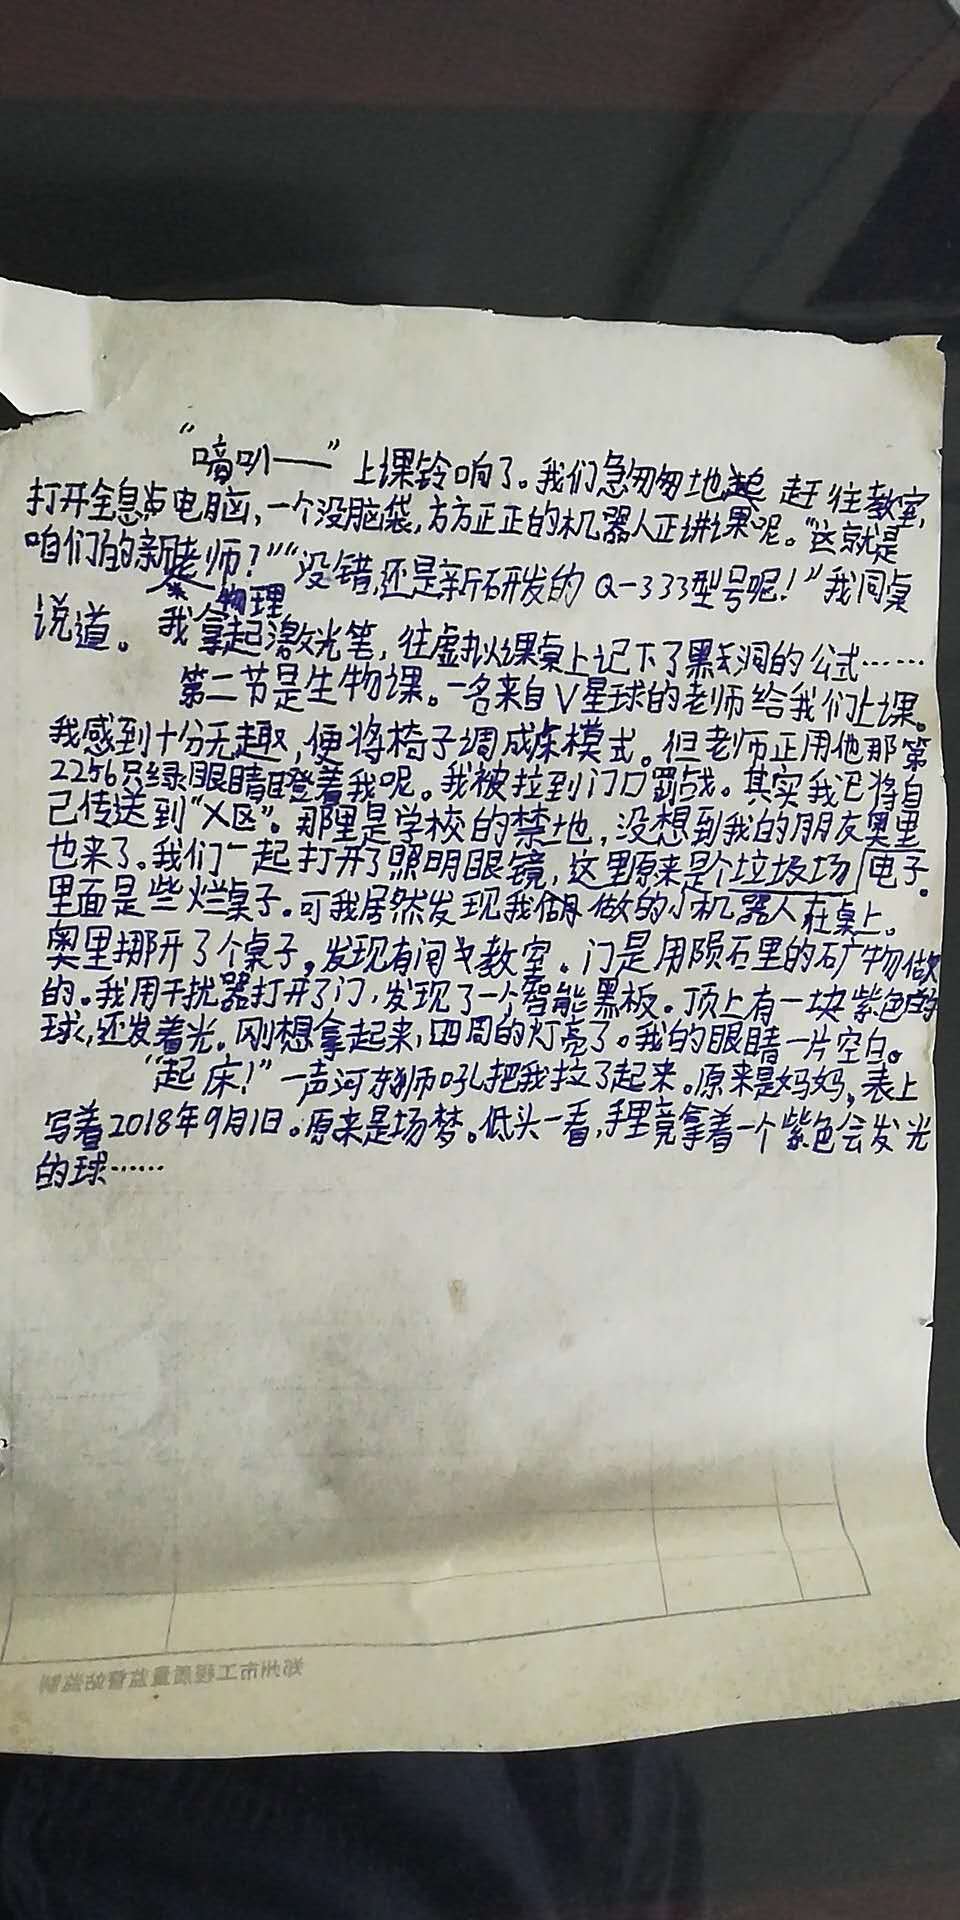 “嘀叭——”上课铃响了。我们急匆匆地赶往教室,
打开全息电脑,一个没脑袋,方方正正的机器人正讲课呢。“这就是
咱们的新老师?”“没错,还是新研发的Q-333型号呢!”我同桌
物理
说道。我拿起激光笔,往虚拟课桌上记下了黑洞的公式……
第二节是生物课。一名来自V星球的老师给我们上课。
我感到十分无趣,便将椅子调成床模式。但老师正用他那第
2256只绿眼睛瞪着我呢。我被拉到门口罚战。其实我已将自
己传送到“X区”。那里是学校的禁地,没想到我的朋友奥里
也来了。我们一起打开了照明眼镜,这里原来是个垃圾场电子。
里面是些烂桌子。可我居然发现我做的小机器人在桌上。
奥里挪开了个桌子,发现有间教室。门是用陨石里的矿物做
的。我用干扰器打开了门,发现了一个智能黑板。顶上有一块紫色的
球,还发着光。刚想拿起来,四周的灯亮了。我的眼睛一片空白。
“起床!”一声河东狮吼把我拉了起来。原来是妈妈,表上
写着2018年9月1日。原来是场梦。低头一看,手里竟拿着一个紫色会发光
的球……
郑州市工程质量监督站监制